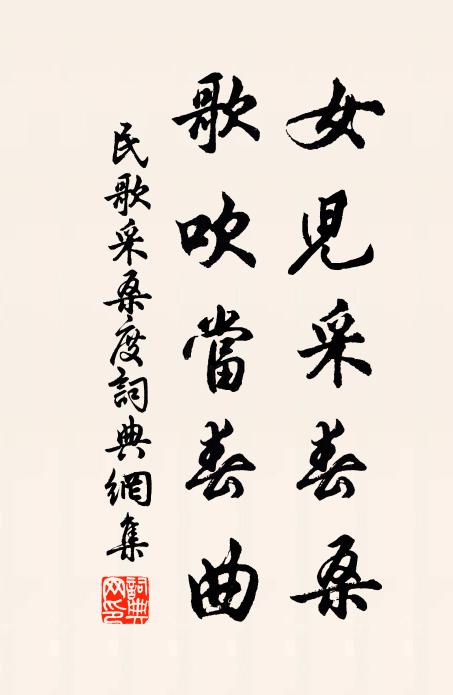 女兒采春桑
歌吹當春曲
民歌采桑度詞典網集
詞典
网印